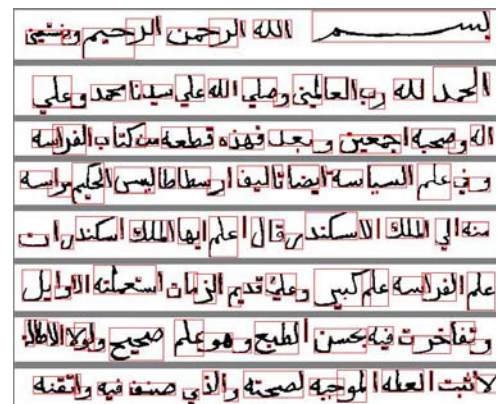 بسم الله الرحمن الرحيم ونستعين
الحمد لله رب العالمين وصلي الله علي سيدنا محمد وعلي
اله وصحبه اجمعين وبعد فهذه قطعه من كتاب الفراسه
وفي علم السياسه ايضا تاليف ارسطاطاليس الحكيم مراسه
منه الي الملك الاسكندر قال اعلم ايها الملك اسكندر ان
علم الفراسه علم كبير وعلي قديم الزمان استعملته الاوايل
وتفاخرت فيه بحسن الطبع وهو علم صحيح ولولا
لا ثبت العله الموجبه لصحته والذي صنف فيه واتقنه